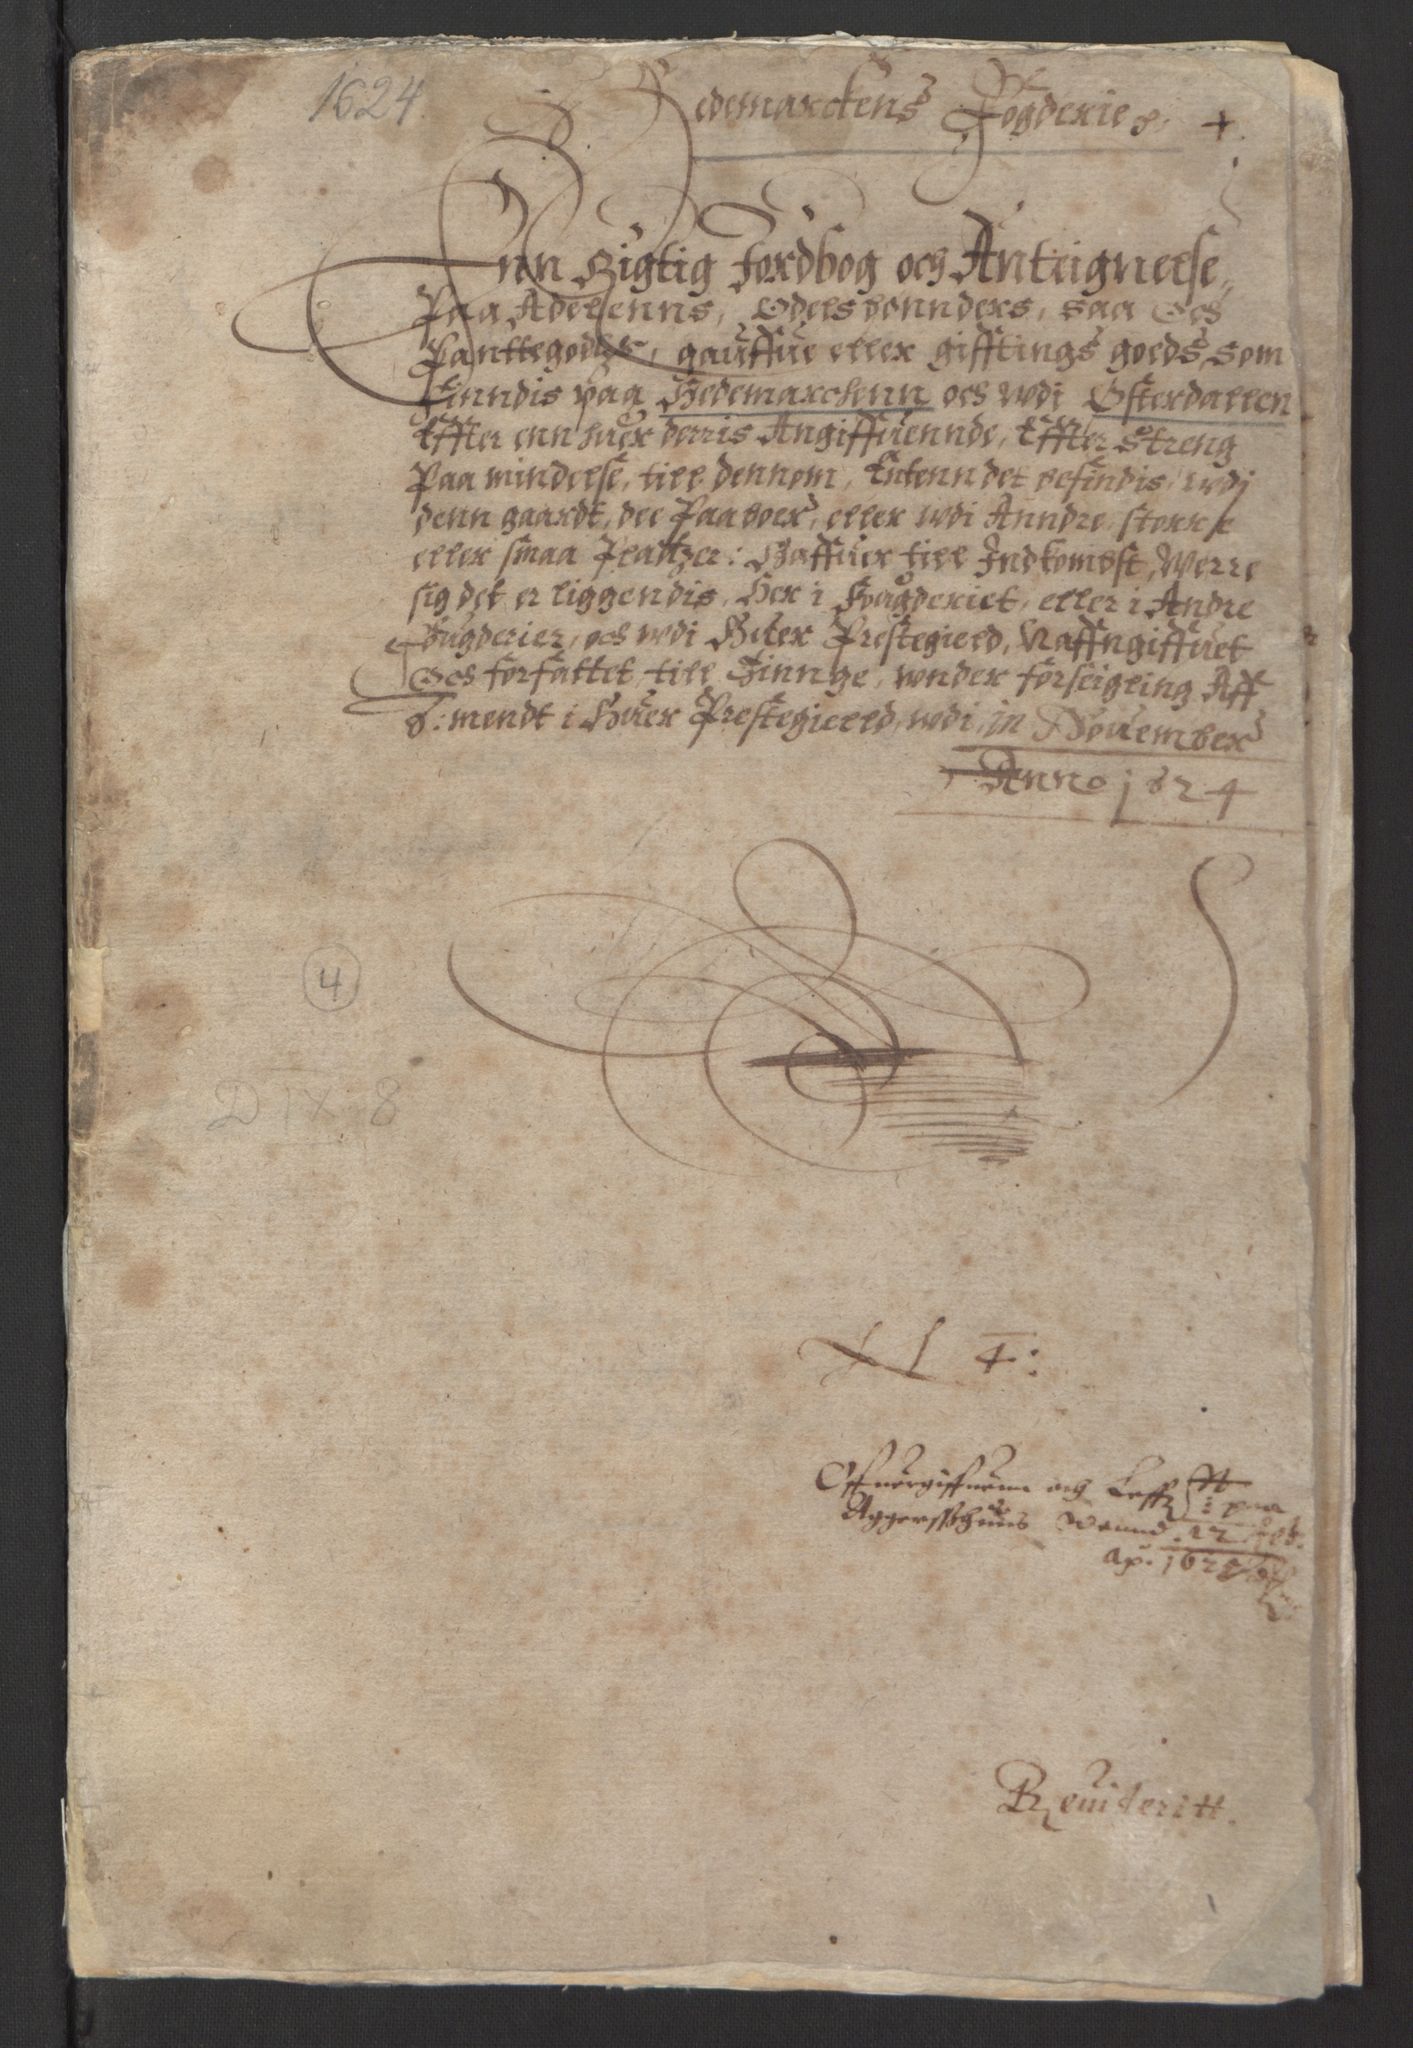 1624.
Hedemarckens Fogderie +
Enn Rigtig Jordbog och Anteignelse
Paa Adelenns, Odelsbonnders, saa Och
Panttegodtzs, gauffue eller gifftings goeds, som
finndis paa Hedemarchenn och wdi Østerdallen
Effter enn huer derris Angiffuennde, Effter Streng
Paamindelse, till dennom, Entenn det befindis, wdj
denn gaardt, dee Paaboer, eller wdi Anndre, storre
eller smaa Platzer: Haffuer till Indkombst, Werre
sig det er liggendis, Her i Fougderiet, eller i Andre
Fougderier, och wdi Huer Prestegield, Naffngiffuet
Och forfattet, till Tinnge, wnder forseigling Aff
8: mendt i Huer Prestegield, wdi, in Nouember
Anno 1624
4
D IX 8
4:
Offuergiffuenn och Leff: paa
Aggershuus 12
1625
Reuideritt.